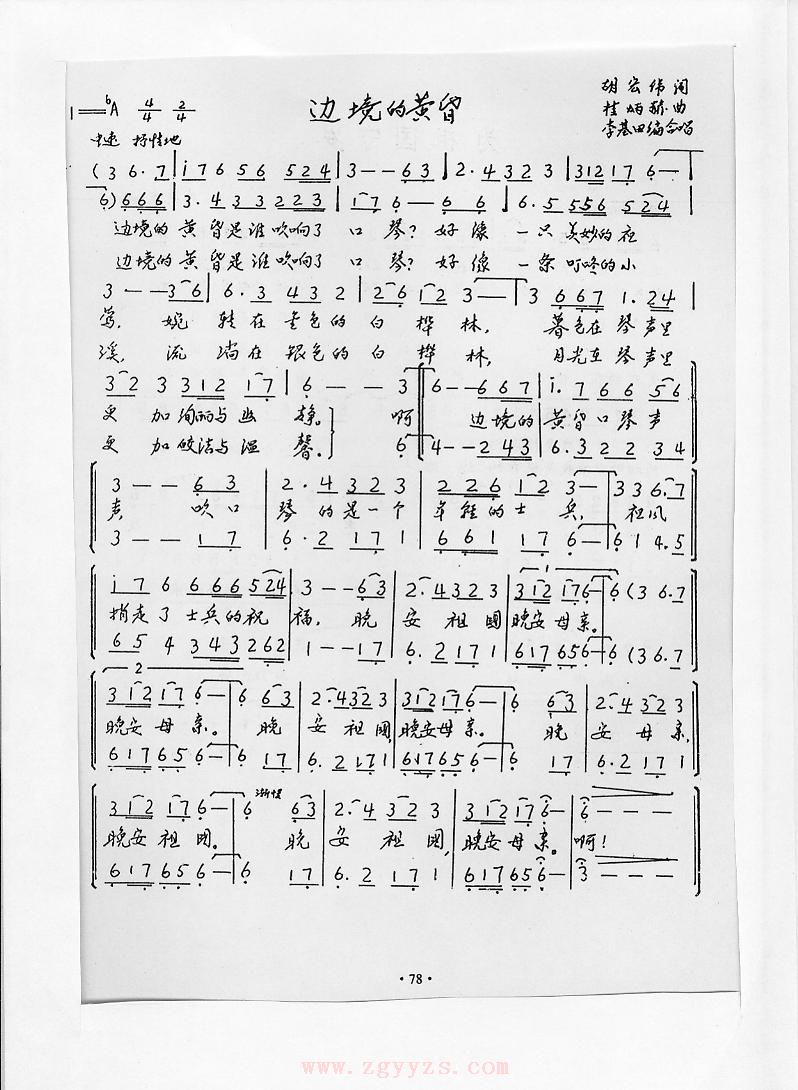 边境的黄昏
胡宏伟词
桂炳 曲
李基田编合唱
1=♭A 4/4 2/4
中速 抒情地
(3 6·7 | i 7 6 5 6 5 2 4 | 3 – – 6 3 | 2·4 3 2 3 | 3 1 2 1 7 6 –
6) 6 6 6 | 3·4 3 3 2 2 3 | 1 7 6 – 6 6 | 6·5 5 5 6 5 2 4
边境的 黄昏是谁吹响了 口琴? 好像 一只美妙的夜
边境的 黄昏是谁吹响了 口琴? 好像 一条叮咚的小
3 – – 3 6 | 6·3 4 3 2 | 2 6 1 2 3 – | 3 6 6 7 1·2 4
莺, 婉转在金色的白桦林, 暮色在琴声里
溪, 流淌在银色的白桦林, 月光在琴声里
3 2 3 3 1 2 1 7 | 6 – – 3 | 6 – – 6 6 7 | i·7 6 6 5 6
更加绚丽与幽静。 啊 边境的 黄昏口琴声
更加皎洁与温馨。
6 | 4 – – 2 4 3 | 6·3 2 2 3 4
3 – – 6 3 | 2·4 3 2 3 | 2 2 6 1 2 3 – | 3 3 6·7
声 吹口 琴的是一个 年轻的士兵, 祖风
3 – – 1 7 | 6·2 1 7 1 | 6 6 1 1 7 6 – | 6 1 4·5
i 7 6 6 6 6 5 2 4 | 3 – – 6 3 | 2·4 3 2 3 | 3 1 2 1 7 6 – | 6 (3 6·7
捎走了士兵的祝福, 晚安祖国 晚安母亲。
6 5 4 3 4 3 2 6 2 | 1 – – 1 7 | 6·2 1 7 1 | 6 1 7 6 5 6 – | 6 (3 6·7
2
3 1 2 1 7 6 – | 6 6 3 | 2·4 3 2 3 | 3 1 2 1 7 6 – | 6 6 3 | 2·4 3 2 3
晚安母亲。 晚安祖国, 晚安母亲。 晚安母亲,
6 1 7 6 5 6 – | 6 1 7 | 6·2 1 7 1 | 6 1 7 6 5 6 – | 6 1 7 | 6·2 1 7 1
渐慢
3 1 2 1 7 6 – | 6 6 3 | 2·4 3 2 3 | 3 1 2 1 7 6 – | 6 – – –
晚安祖国。 晚安祖国, 晚安母亲。 啊!
6 1 7 6 5 6 – | 6 1 7 | 6·2 1 7 1 | 6 1 7 6 5 6 – | 3 – – –
·78·
www.zgyyzs.com